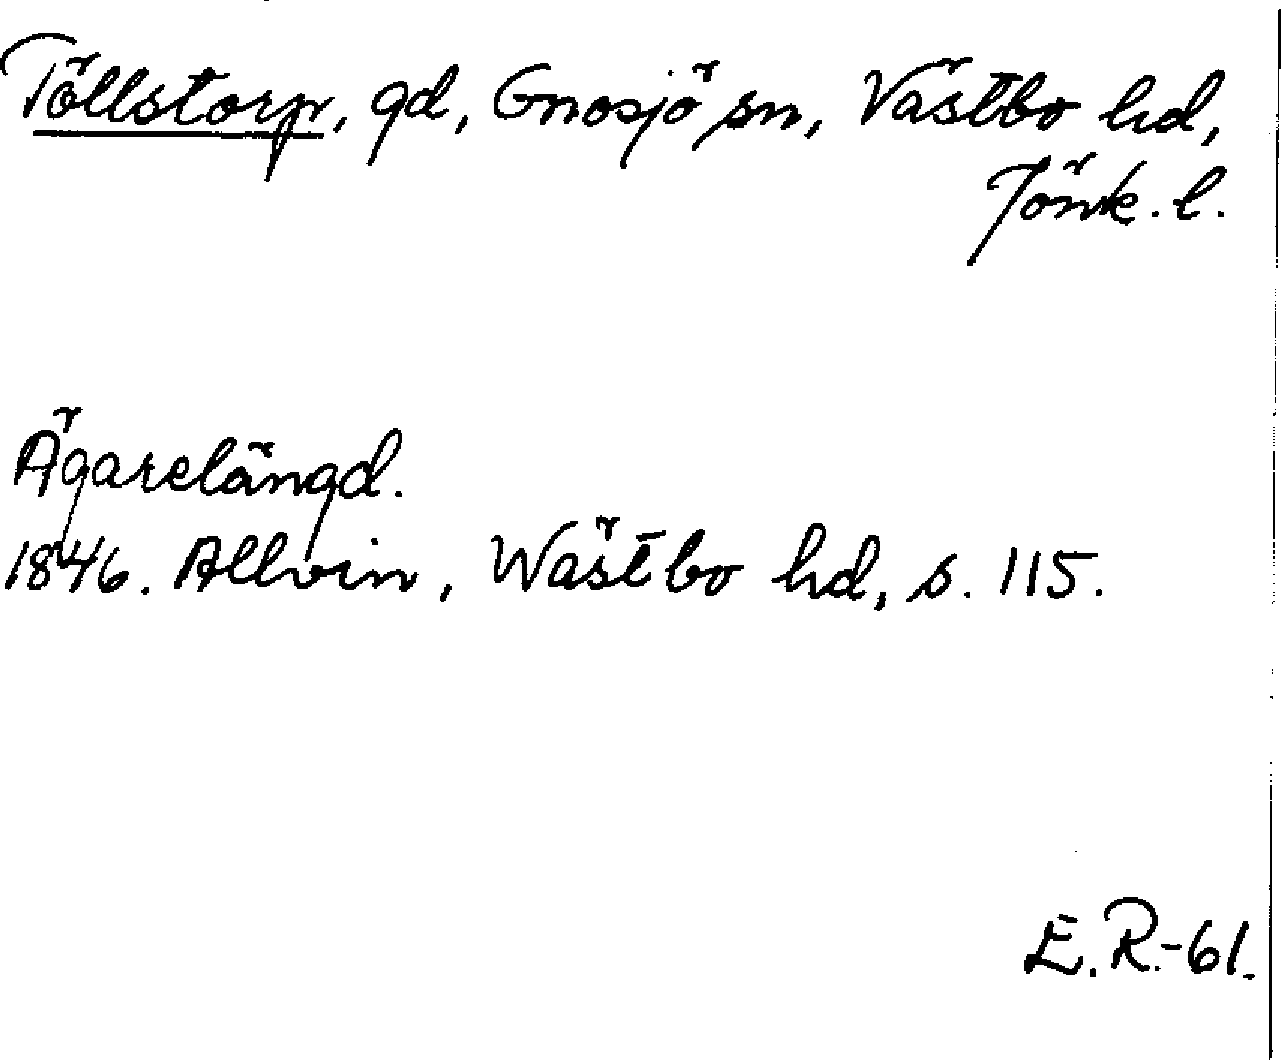 Töllstorp, gd, Gnosjö sn, Västbo hd,
Jönk. l.
Ägarelängd.
1846. Allvin, Wästbo hd, s. 115.
E.R.-61.